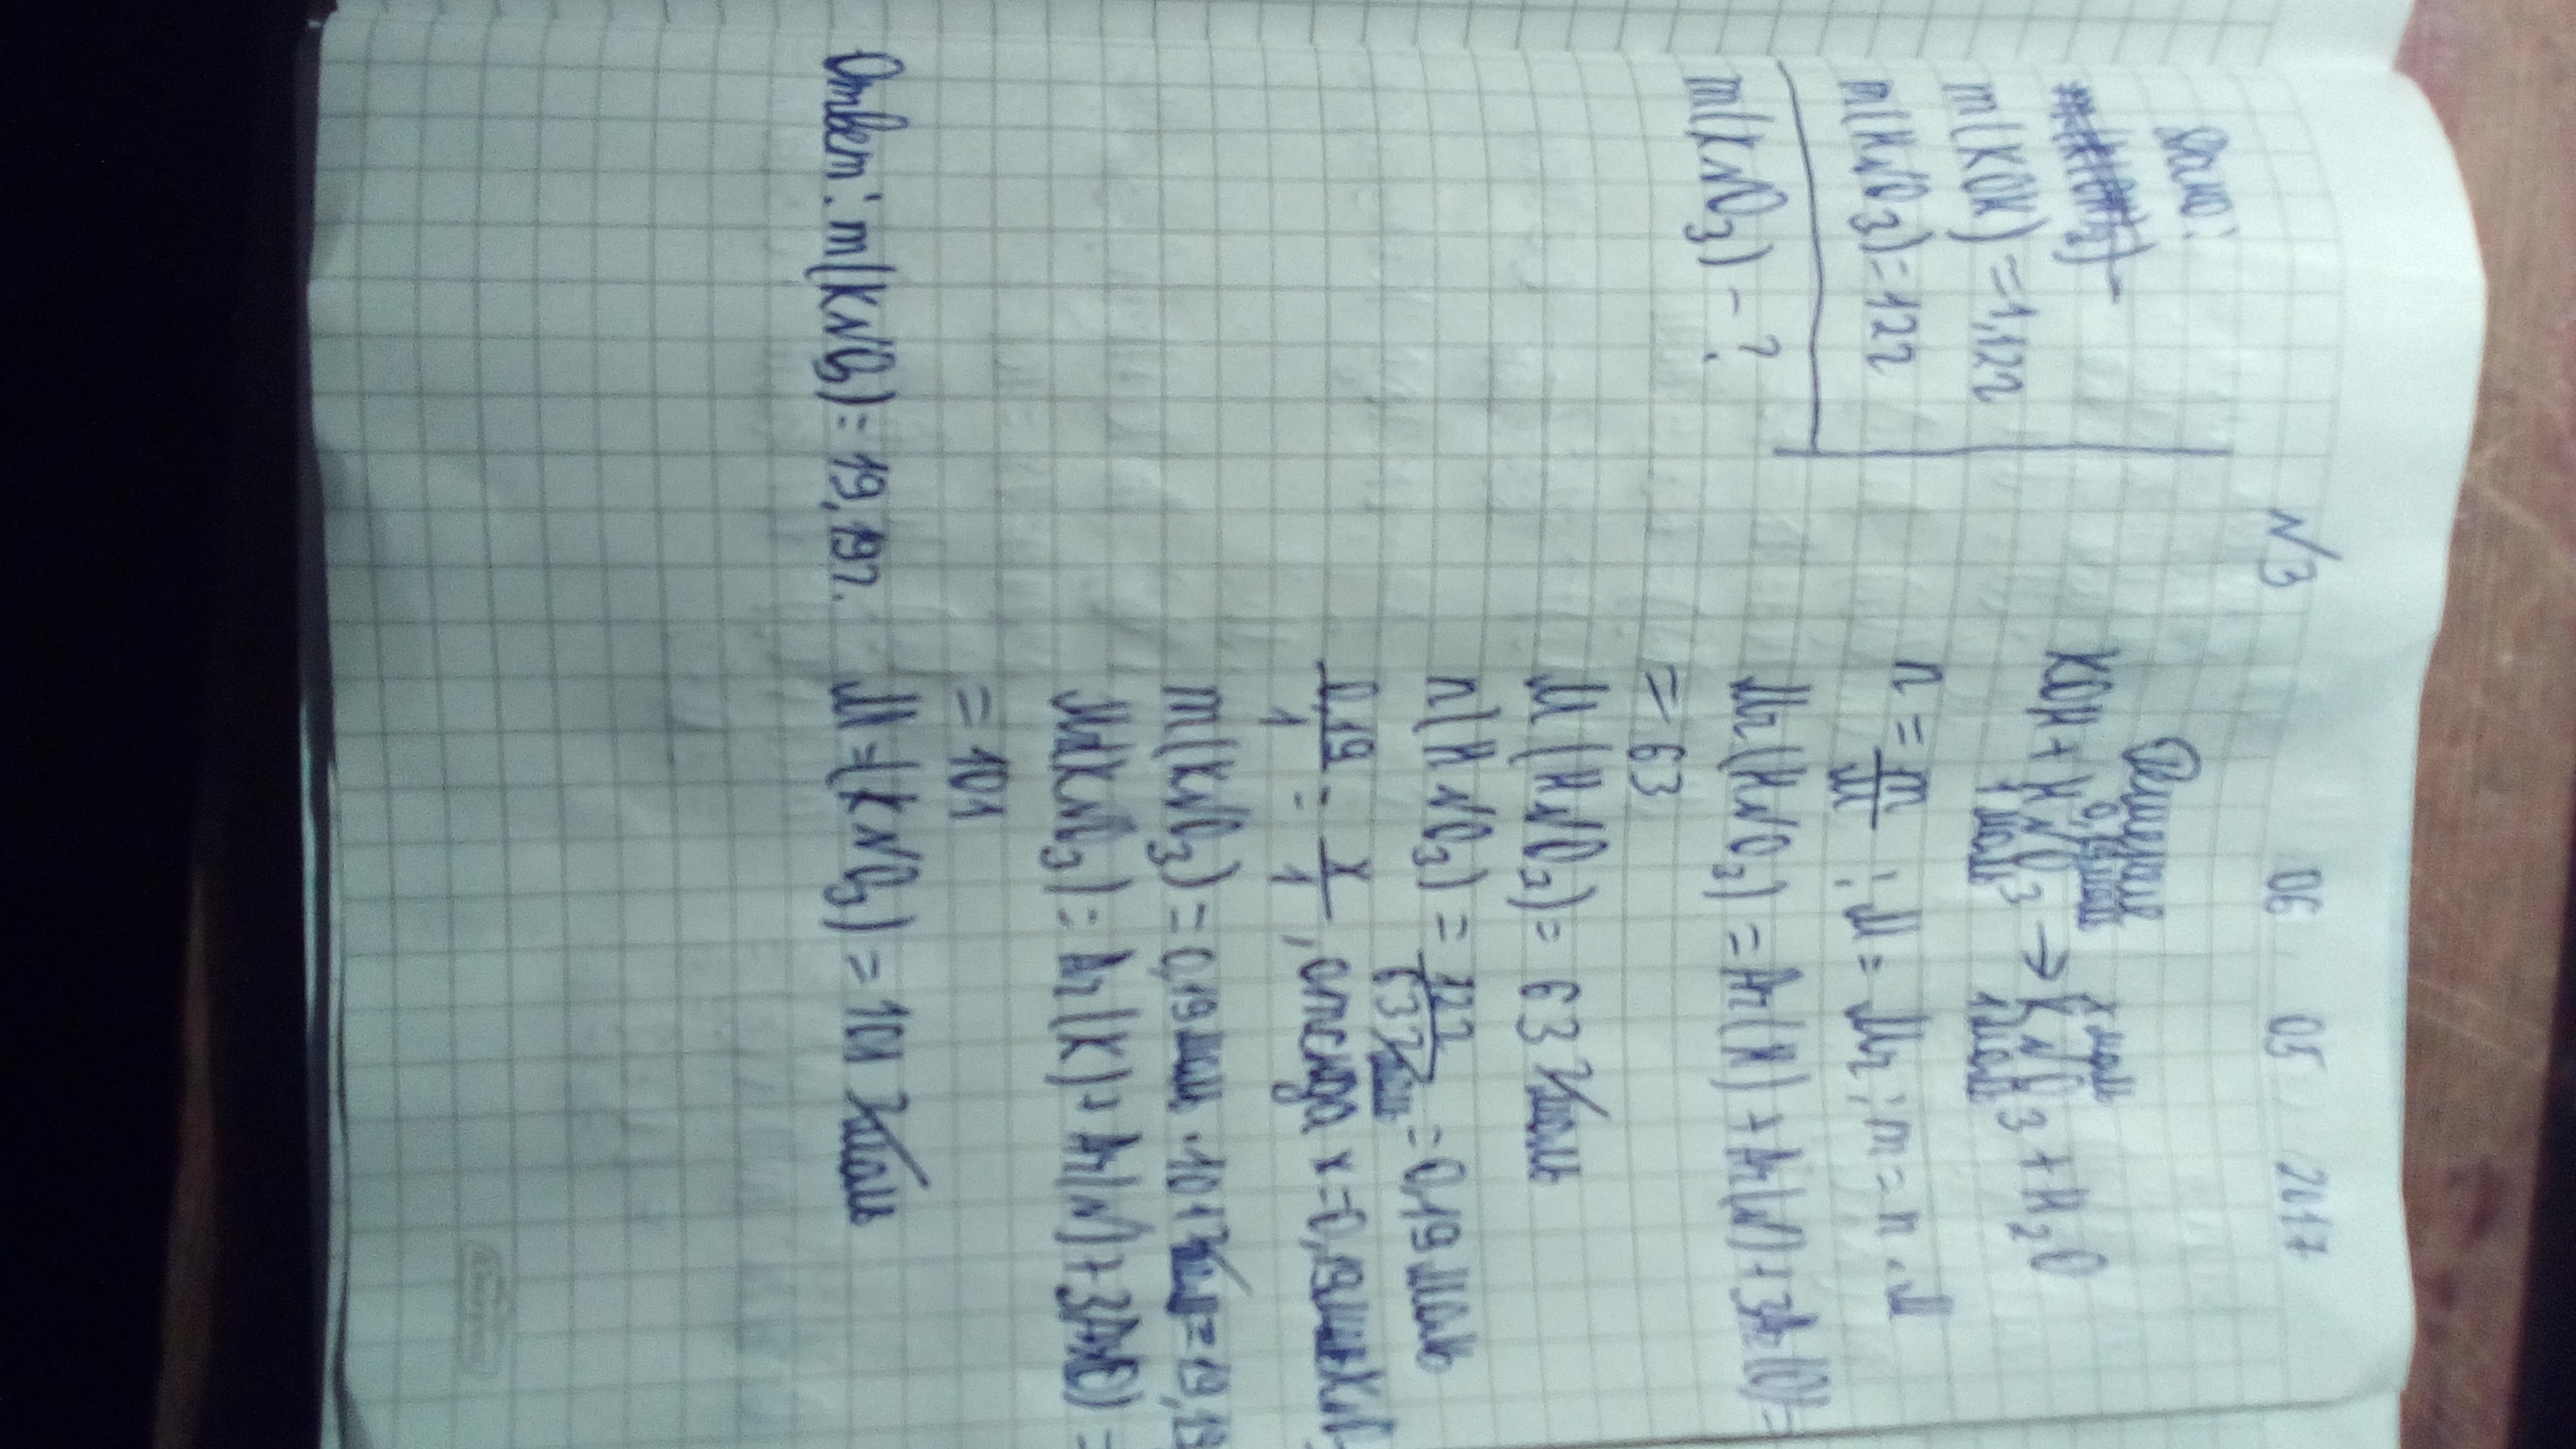 06 05 2017
N3
Дано:
m(KOH) = 1,12г
m(HNO3) = 12г
m(KNO3) - ?
Решение
0,19моль x моль
KOH + HNO3 → KNO3 + H2O
1 моль 1 моль
n = m/M ; M = Mr ; m = n · M
Mr (HNO3) = Ar(H) + Ar(N) + 3Ar(O) =
= 63
M (HNO3) = 63 г/моль
n(HNO3) = 12г/63г/моль = 0,19 моль
0,19/1 = x/1 , отсюда x = 0,19моль KN
m(KNO3) = 0,19моль · 101г/моль = 19,19
Mr(KNO3) = Ar(K) + Ar(N) + 3Ar(O) =
= 101
M = (KNO3) = 101 г/моль
Ответ: m(KNO3) = 19,19г.